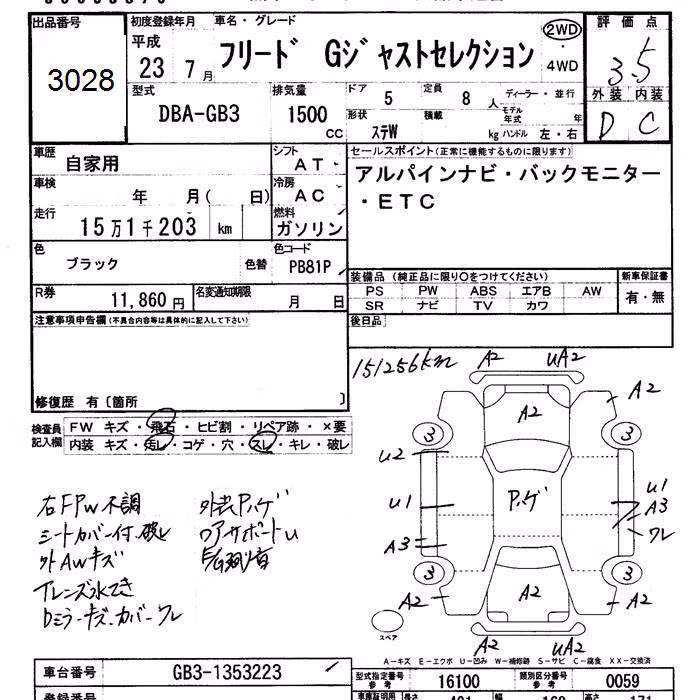 出品番号 初度登録年月 車名・グレード 評価点
3028 平成 23 7月 フリード Gジャストセレクション 2WD ・ 4WD 3.5
外装 内装
D C
型式 排気量 ドア 定員 ディーラー・並行
DBA-GB3 1500 CC 5 8 人 モデル年式 年
形状 積載
ステW kg ハンドル 左・右
車歴 自家用 シフト AT セールスポイント(正常に機能するものに限ります)
車検 年 月( 日) 冷房 AC アルパインナビ・バックモニター
走行 15万1千203 km 燃料 ガソリン ・ETC
色 ブラック 色替 色コード PB81P
装備品(純正品に限り○をつけてください) 新車保証書
PS PW ABS エアB AW 有・無
SR ナビ TV カワ
R券 11,860円 名変通知期限 月 日
後日品
注意事項申告欄(不具合内容等は具体的に記入して下さい)
修復歴 有〔箇所 〕
151256km
検査員記入欄 FW キズ・飛石・ヒビ割・リペア跡・×要
内装 キズ・汚レ・コゲ・穴・スレ・キレ・破レ
右FPW不調
シートカバー付、破レ
外AWキズ
Dミラーキズ、カバーワレ
A2 UA2
A2 A2
3 3
U2
U1 P.ゲ U1
A3
A3 ワレ
3 3
A2 A2 A2
A2 UA2
スペア
A-キズ E-エクボ U-凹み W-補修跡 S-サビ C-腐食 XX-交換済
車台番号 GB3-1353223 型式指定番号 参考 16100 類別区分番号 参考 0059